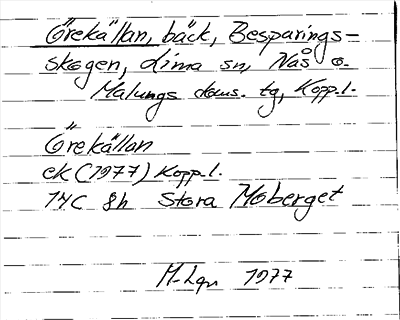 Görekällan, bäck, Besparings-
skogen, Lima sn, Nås o.
Malungs doms. tg, Kopp.l.
Görekällan
ek (1977) Kopp.l.
14C 8h Stora Moberget
M-Lgn 1977